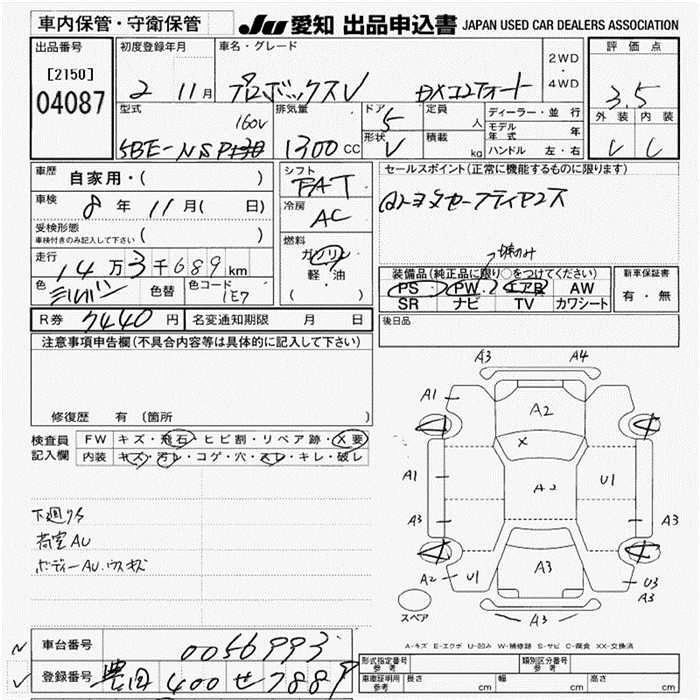 車内保管・守衛保管 JU 愛知 出品申込書 JAPAN USED CAR DEALERS ASSOCIATION
出品番号 初度登録年月 車名・グレード 2WD・4WD 評価点
[2150] 2 11月 プロボックスV DXコンフォート 3.5
04087 外装 内装
C C
型式 排気量 ドア 定員 ディーラー・並行
160V 5 人 モデル年式 年
5BE-NSP130 1300CC 形状 V 積載 kg ハンドル 左・右
車歴 自家用・( ) シフト FAT セールスポイント(正常に機能するものに限ります)
車検 8年 11月( 日) 冷房 AC ①トヨタセーフティセンス
受検形態
車検付きのみ記入して下さい ( )
走行 14万3千689km 燃料 ガソリン 軽・油 ( )
装備品(純正品に限り○をつけてください) 新車保証書
PS PW エアB AW 有・無
SR ナビ TV カワシート
色 シルバー 色替 色コード 1E7
後日品
R券 7440円 名変通知期限 月 日
注意事項申告欄(不具合内容等は具体的に記入して下さい)
修復歴 有(箇所 )
検査員記入欄 FW キズ・飛石・ヒビ割・リペア跡・X要
内装 キズ・汚レ・コゲ・穴・スレ・キレ・破レ
A3 A4
A1 A2
X
A1 A2 U1
A3 A3
A2 U1 A3 U3
A3
A3
スペア
下廻りサ
荷室AU
ボディーAU.ウスキズ
A-キズ E-エクボ U-凹み W-補修跡 S-サビ C-腐食 XX-交換済
車台番号 0056993
登録番号 豊田 400 せ 7889
形式指定番号 参考 類別区分番号 参考
車庫証明用 参考 長さ cm 幅 cm 高さ cm